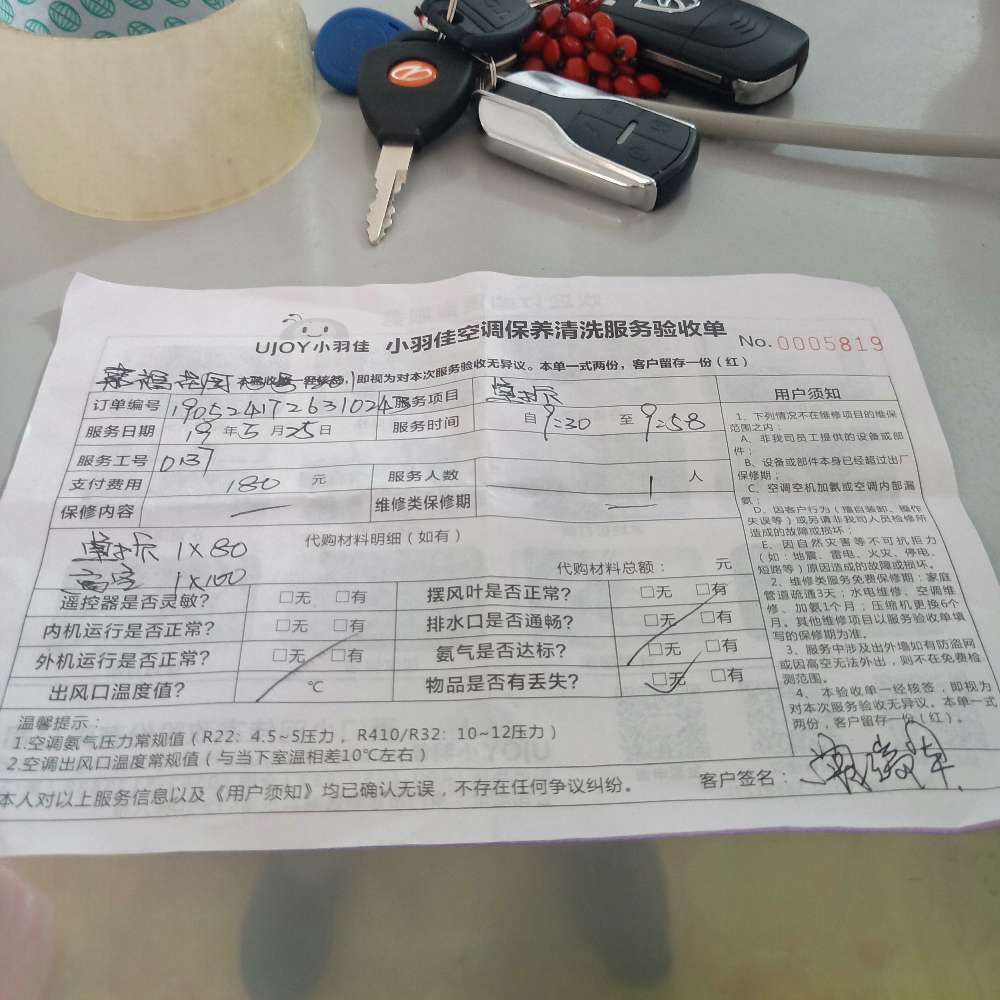 UJOY小羽佳 小羽佳空调保养清洗服务验收单 No.0005819
即视为对本次服务验收无异议。本单一式两份，客户留存一份（红）
订单编号 190524172631024 服务项目
服务日期 19 年 5 月 25 日 服务时间 自 9:30 至 9:58
服务工号 0137
支付费用 180 元 服务人数 1 人
保修内容 — 维修类保修期 —
代购材料明细（如有）
1X80
1X100
代购材料总额： 元
遥控器是否灵敏？ □无 □有 摆风叶是否正常？ □无 □有
内机运行是否正常？ □无 □有 排水口是否通畅？ □无 □有
外机运行是否正常？ □无 □有 氨气是否达标？ □无 □有
出风口温度值？ ℃ 物品是否有丢失？ □无 □有
温馨提示：
1.空调氨气压力常规值（R22：4.5~5压力，R410/R32：10~12压力）
2.空调出风口温度常规值（与当下室温相差10℃左右）
本人对以上服务信息以及《用户须知》均已确认无误，不存在任何争议纠纷。 客户签名：
用户须知
1、下列情况不在维修项目的维保
范围之内：
A、非我司员工提供的设备或部
件；
B、设备或部件本身已经超过出厂
保修期；
C、空调空机加氨或空调内部漏
氨；
D、因客户行为（擅自装卸、操作
失误等）或另请非我司人员检修所
造成的故障或损坏；
E、因自然灾害等不可抗拒力
（如：地震、雷电、火灾、停电、
短路等）原因造成的故障或损坏。
2、维修类服务免费保修期：家庭
管道疏通3天；水电维修、空调维
修、加氨1个月；压缩机更换6个
月。其他维修项目以服务验收单填
写的保修期为准。
3、服务中涉及出外墙如有防盗网
或因高空无法外出，则不在免费检
测范围。
4、本验收单一经核签，即视为
对本次服务验收无异议。本单一式
两份，客户留存一份（红）。